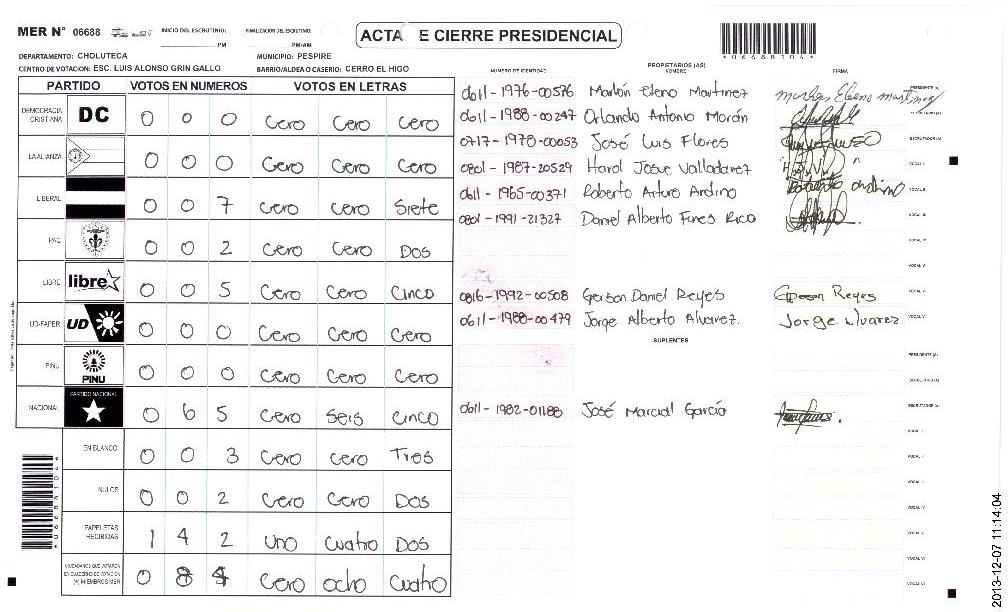 MER Nº 06688 INICIO DEL ESCRUTINIO: PM FINALIZACION DEL ESCRUTINIO: PM/AM
ACTA E CIERRE PRESIDENCIAL
*06688104*
DEPARTAMENTO: CHOLUTECA MUNICIPIO: PESPIRE
CENTRO DE VOTACION: ESC. LUIS ALONSO GRIN GALLO BARRIO/ALDEA O CASERIO: CERRO EL HIGO
PARTIDO VOTOS EN NUMEROS VOTOS EN LETRAS
DEMOCRACIA CRISTIANA DC 0 0 0 Cero Cero Cero
LA ALIANZA 0 0 0 Cero Cero Cero
LIBERAL 0 0 7 Cero Cero Siete
PAC 0 0 2 Cero Cero Dos
LIBRE libre 0 0 5 Cero Cero Cinco
UD-FAPER UD 0 0 0 Cero Cero Cero
PINU PINU 0 0 0 Cero Cero Cero
NACIONAL PARTIDO NACIONAL 0 6 5 Cero Seis Cinco
EN BLANCO 0 0 3 Cero Cero Tres
NULOS 0 0 2 Cero Cero Dos
PAPELETAS RECIBIDAS 1 4 2 Uno Cuatro Dos
CIUDADANOS QUE VOTARON EN CUADERNO DE VOTACION (+) MIEMBROS MER 0 8 4 Cero ocho Cuatro
PROPIETARIOS (AS)
NUMERO DE IDENTIDAD NOMBRE FIRMA
0611-1976-00576 Marlón Eleno Martinez PRESIDENTE (A)
0611-1988-00247 Orlando Antonio Morán SECRETARIO (A)
0717-1978-00053 José Luis Flores ESCRUTADOR (A)
0801-1987-20529 Harol Josue Valladarez VOCAL I
0611-1965-00371 Roberto Arturo Andino VOCAL II
0801-1991-21327 Daniel Alberto Funes Rico VOCAL III
VOCAL IV
VOCAL V
0816-1992-00508 Gerson Daniel Reyes Gerson Reyes
0611-1988-00479 Jorge Alberto Alvarez. Jorge Alvarez
SUPLENTES
PRESIDENTE (A)
SECRETARIO (A)
0611-1982-01188 José Marcial García ESCRUTADOR (A)
VOCAL I
VOCAL II
VOCAL III
VOCAL IV
VOCAL V
2013-12-07 11:14:04